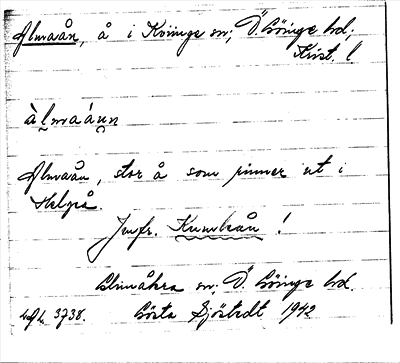 Almaån, å i Kviinge sn; Ö. Göinge hd;
Krist. l.
àlmaáun
Almaån, stor å som rinner ut i
Helgeå.
Jmfr. Kumlaån !
Glimåkra sn; Ö. Göinge hd.
3738. Gösta Sjöstedt 1942